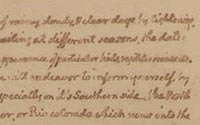 of rainy, cloudy, & clear days, by lightening,
ailing at different seasons, the dates
appearance of particular birds, reptiles or insects.
will endeavor to inform yourself, by
specially on it's Southern side. the North
or, or Rio colorado which runs into the